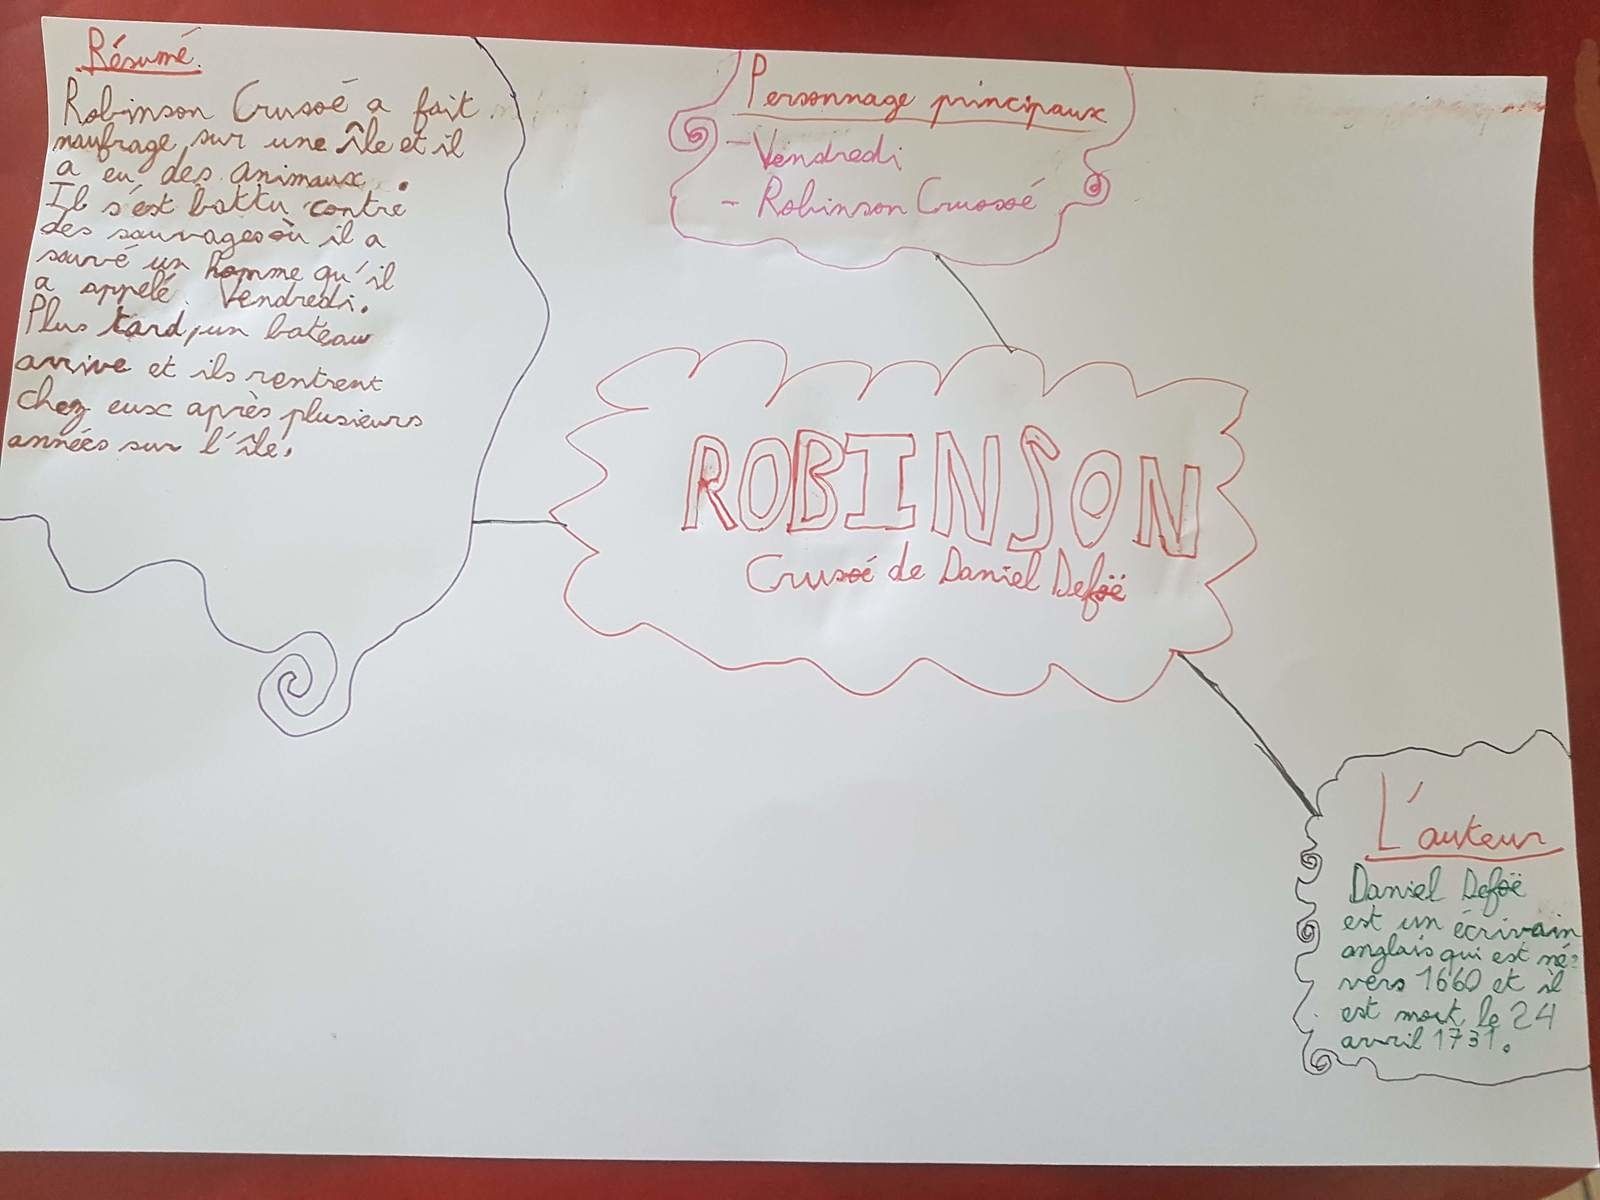 Résumé.
Robinson Crusoé a fait
naufrage sur une île et il
a eu des animaux.
Il s'est battu contre
des sauvages où il a
sauvé un homme qu'il
a appelé Vendredi.
Plus tard, un bateau
arrive et ils rentrent
chez eux après plusieurs
années sur l'île.
Personnage principaux
- Vendredi
- Robinson Crusoé
ROBINSON
Crusoé de Daniel Defoë
L'auteur
Daniel Defoë
est un écrivain
anglais qui est né
vers 1660 et il
est mort le 24
avril 1731.